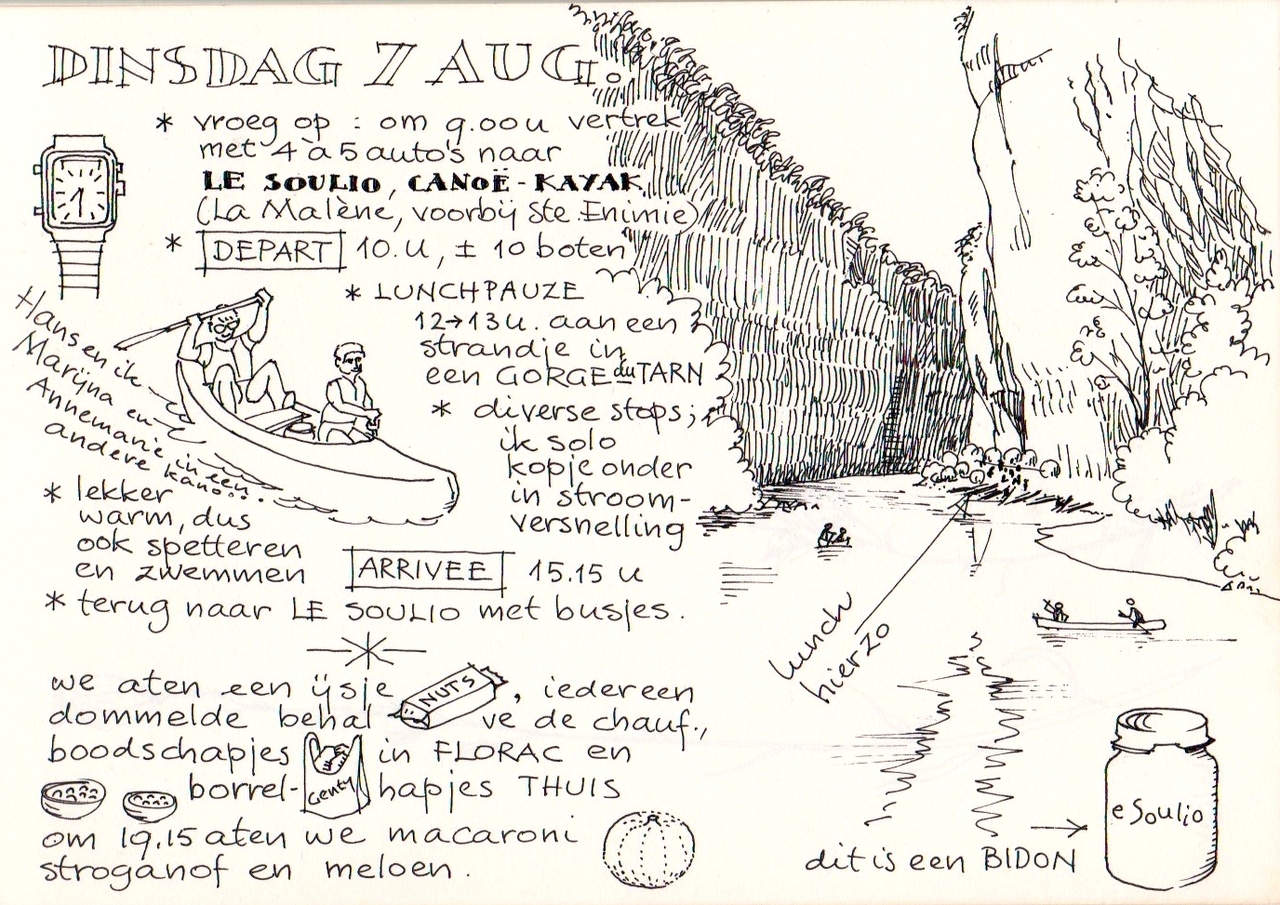 DINSDAG 7 AUG.
* vroeg op : om 9.00u vertrek
met 4 à 5 auto's naar
LE SOULIO, CANOË-KAYAK
(La Malène, voorbij Ste Enimie)
* DEPART 10.U, ± 10 boten
* LUNCHPAUZE
12→13u. aan een
strandje in
een GORGE du TARN
* diverse stops;
ik solo
kopje onder
in stroom-
versnelling
Hans en ik
Marijna en
Annemarie in een
andere kano!
* lekker
warm, dus
ook spetteren
en zwemmen
ARRIVEE 15.15 u
* terug naar LE SOULIO met busjes.
lunch
hierzo
we aten een ijsje NUTS, iedereen
dommelde behalve de chauf.,
boodschapjes in FLORAC en
Genty
borrel-hapjes THUIS
om 19.15 aten we macaroni
stroganof en meloen.
e Soulio
dit is een BIDON